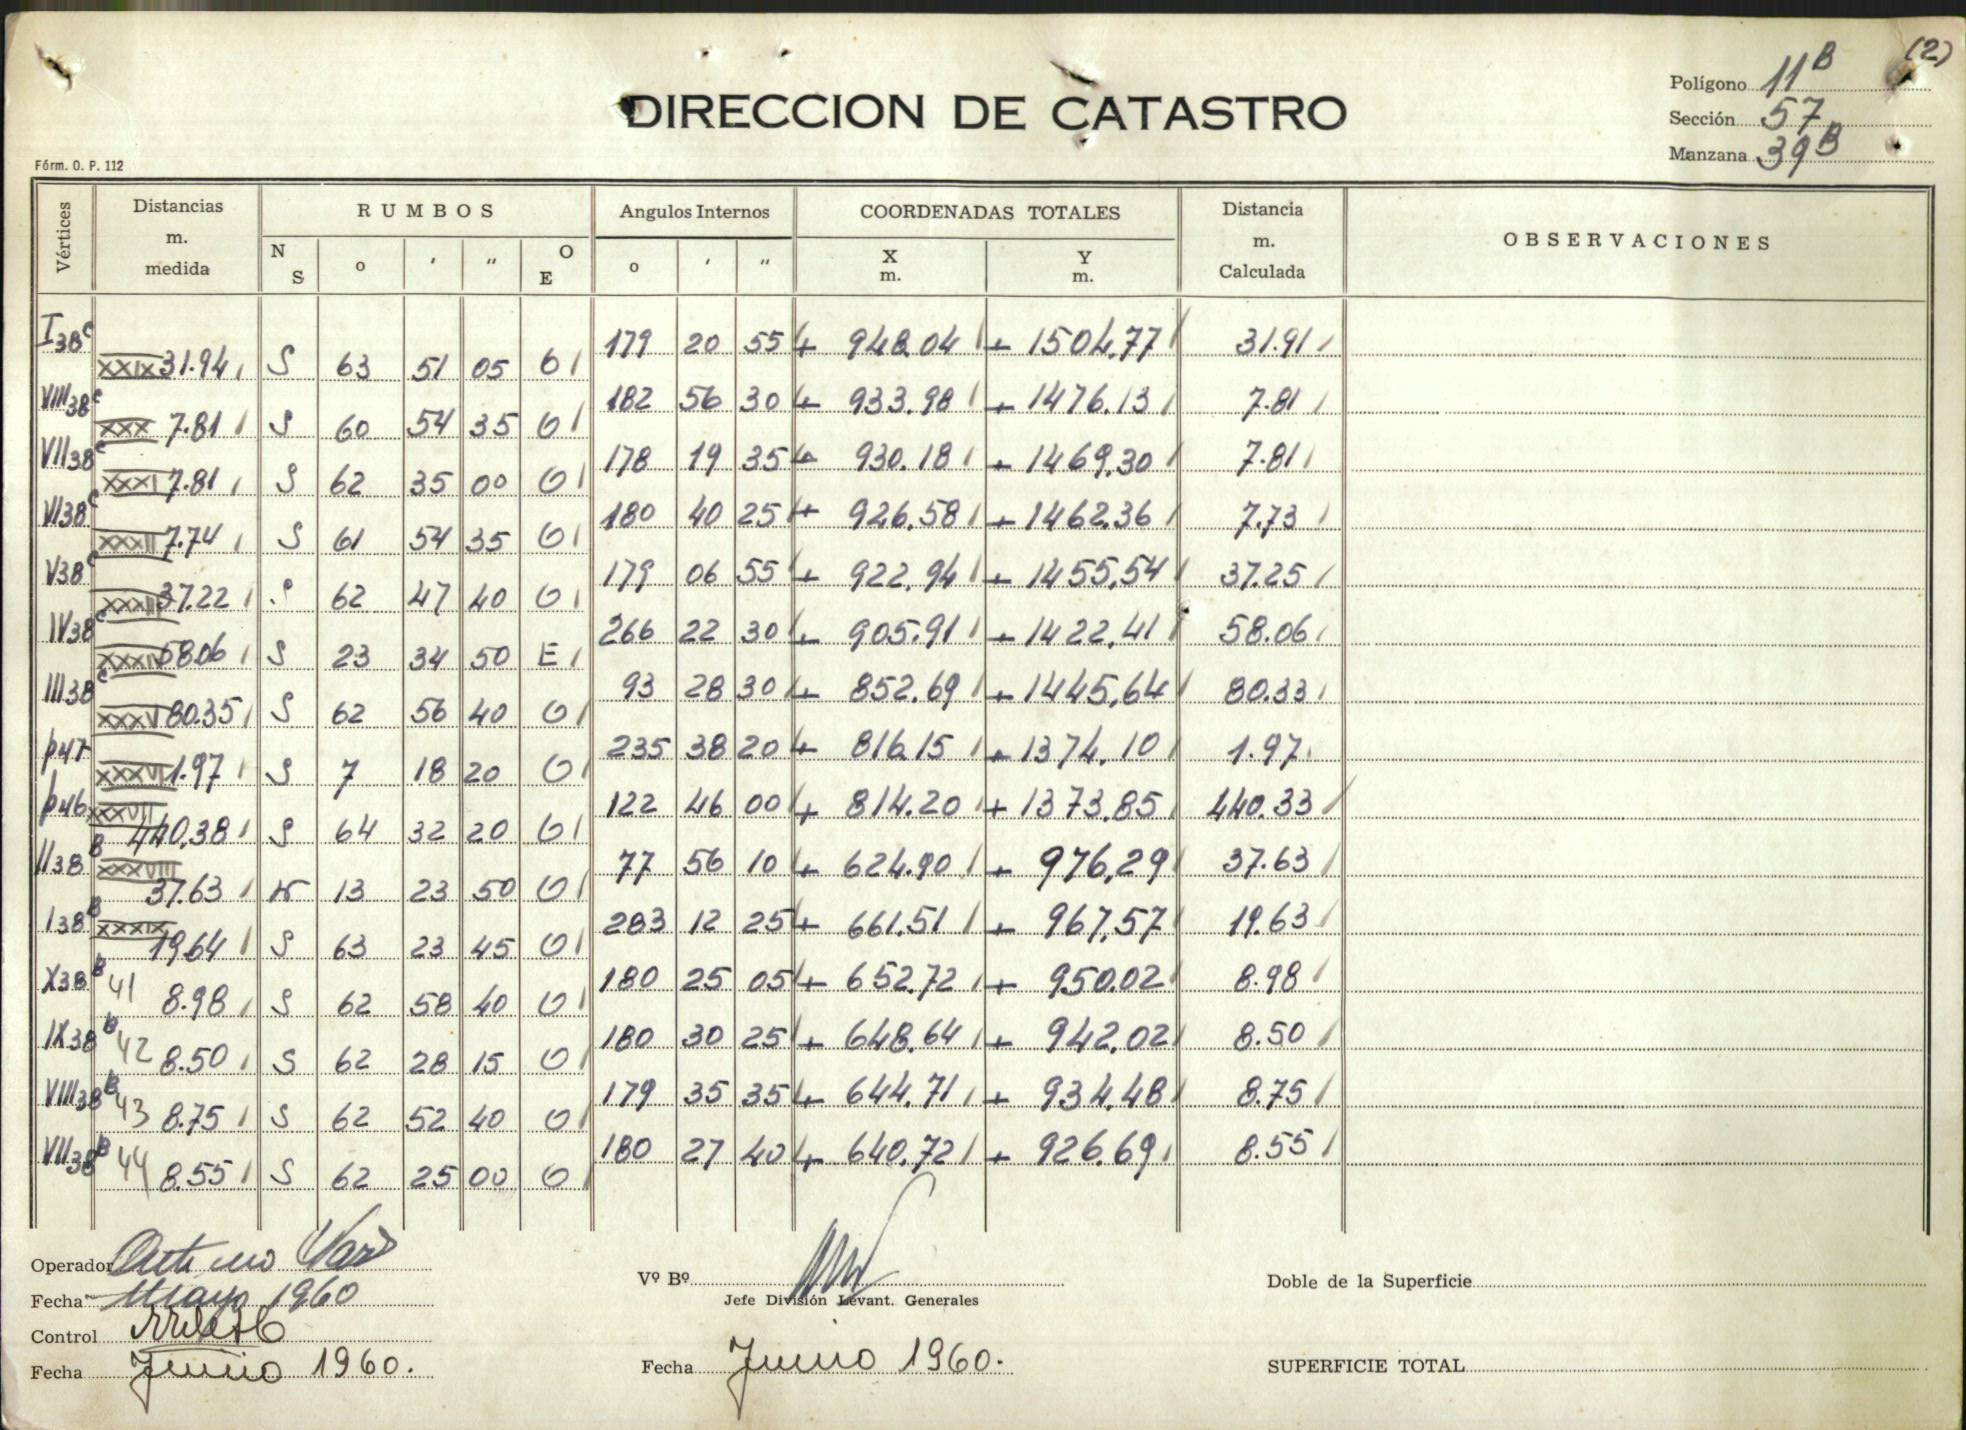 (2)
Polígono 11B
DIRECCION DE CATASTRO
Sección 57
Manzana 39B
Fórm. O. P. 112
Vértices Distancias m. medida RUMBOS Angulos Internos COORDENADAS TOTALES Distancia m. Calculada OBSERVACIONES
N S o ' " O E o ' " X m. Y m.
I38c 179 20 55 + 948.04 + 1504.77 31.91
XXIX 31.94 S 63 51 05 O
VIII38c 182 56 30 + 933.98 + 1476.13 7.81
XXX 7.81 S 60 54 35 O
VII38c 178 19 35 + 930.18 + 1469.30 7.81
XXXI 7.81 S 62 35 00 O
VI38c 180 40 25 + 926.58 + 1462.36 7.73
XXXII 7.74 S 61 54 35 O
V38c 179 06 55 + 922.94 + 1455.54 37.25
XXXIII 37.22 S 62 47 40 O
IV38c 266 22 30 + 905.91 + 1422.41 58.06
XXXIV 58.06 S 23 34 50 E
III38c 93 28 30 + 852.69 + 1445.64 80.33
XXXV 80.35 S 62 56 40 O
p47 235 38 20 + 816.15 + 1374.10 1.97
XXXVI 1.97 S 7 18 20 O
p46 122 46 00 + 814.20 + 1373.85 440.33
XXXVII 440.38 S 64 32 20 O
II38B 77 56 10 + 624.90 + 976.29 37.63
XXXVIII 37.63 N 13 23 50 O
I38B 283 12 25 + 661.51 + 967.57 19.63
XXXIX 19.64 S 63 23 45 O
X38B 180 25 05 + 652.72 + 950.02 8.98
41 8.98 S 62 58 40 O
IX38B 180 30 25 + 648.64 + 942.02 8.50
42 8.50 S 62 28 15 O
VIII38B 179 35 35 + 644.71 + 934.48 8.75
43 8.75 S 62 52 40 O
VII38B 180 27 40 + 640.72 + 926.69 8.55
44 8.55 S 62 25 00 O
Operador
Vº Bº
Doble de la Superficie
Fecha Mayo 1960
Jefe División Levant. Generales
Control
Fecha Junio 1960.
Fecha Junio 1960.
SUPERFICIE TOTAL